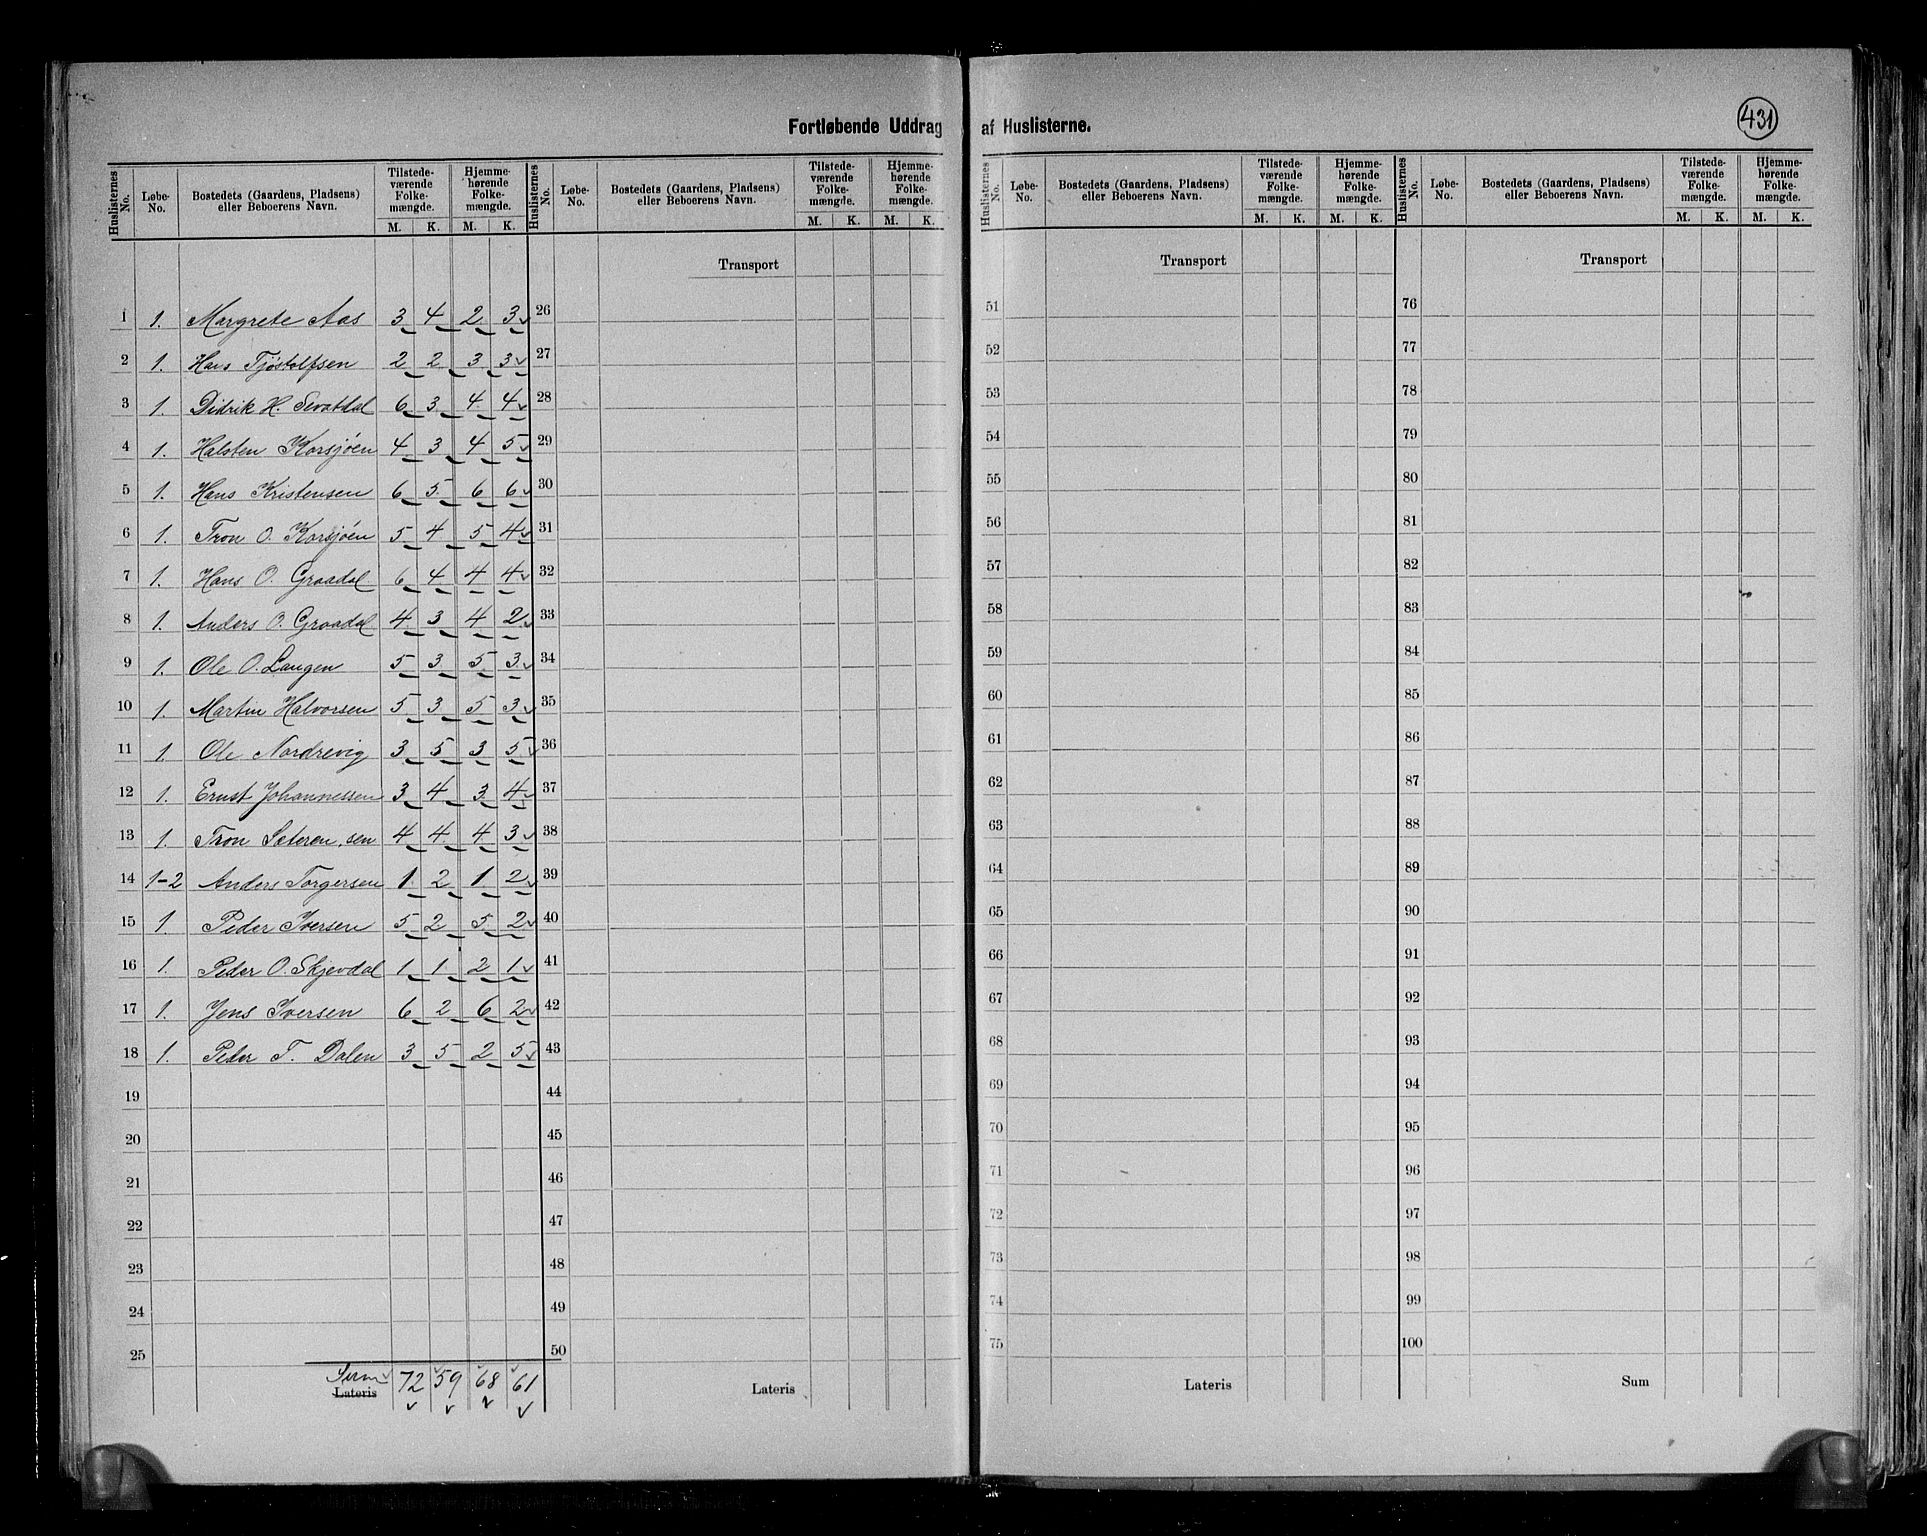 Fortløbende Uddrag af Huslisterne.
431
Huslisternes No. | Løbe-No. | Bostedets (Gaardens, Pladsens) eller Beboerens Navn. | Tilstedeværende Folkemængde. M. K. | Hjemmehørende Folkemængde. M. K.
1 1. Margrete Aas 3 4 2 3
2 1. Hans Tjøstolfsen 2 2 3 3
3 1. Didrik H. Sevatdal 6 3 4 4
4 1. Halsten Korsjøen 4 3 4 5
5 1. Hans Kristensen 6 5 6 6
6 1. Tron O. Korsjøen 5 4 5 4
7 1. Hans O. Graadal 6 4 4 4
8 1. Anders O. Graadal 4 3 4 2
9 1. Ole O. Langen 5 3 5 3
10 1. Martin Halvorsen 5 3 5 3
11 1. Ole Nordrevig 3 5 3 5
12 1. Ernst Johannessen 3 4 3 4
13 1. Tron Sæteren, sen 4 4 4 3
14 1-2 Anders Torgersen 1 2 1 2
15 1 Peder Iversen 5 2 5 2
16 1. Peder O. Skjevdal 1 1 2 1
17 1. Jens Iversen 6 2 6 2
18 1. Peder T. Dalen 3 5 2 5
19
20
21
22
23
24
25
Sum Lateris 72 59 68 61
Huslisternes No. | Løbe-No. | Bostedets (Gaardens, Pladsens) eller Beboerens Navn. | Tilstedeværende Folkemængde. M. K. | Hjemmehørende Folkemængde. M. K.
Transport
26
27
28
29
30
31
32
33
34
35
36
37
38
39
40
41
42
43
44
45
46
47
48
49
50
Lateris
Huslisternes No. | Løbe-No. | Bostedets (Gaardens, Pladsens) eller Beboerens Navn. | Tilstedeværende Folkemængde. M. K. | Hjemmehørende Folkemængde. M. K.
Transport
51
52
53
54
55
56
57
58
59
60
61
62
63
64
65
66
67
68
69
70
71
72
73
74
75
Lateris
Huslisternes No. | Løbe-No. | Bostedets (Gaardens, Pladsens) eller Beboerens Navn. | Tilstedeværende Folkemængde. M. K. | Hjemmehørende Folkemængde. M. K.
Transport
76
77
78
79
80
81
82
83
84
85
86
87
88
89
90
91
92
93
94
95
96
97
98
99
100
Sum